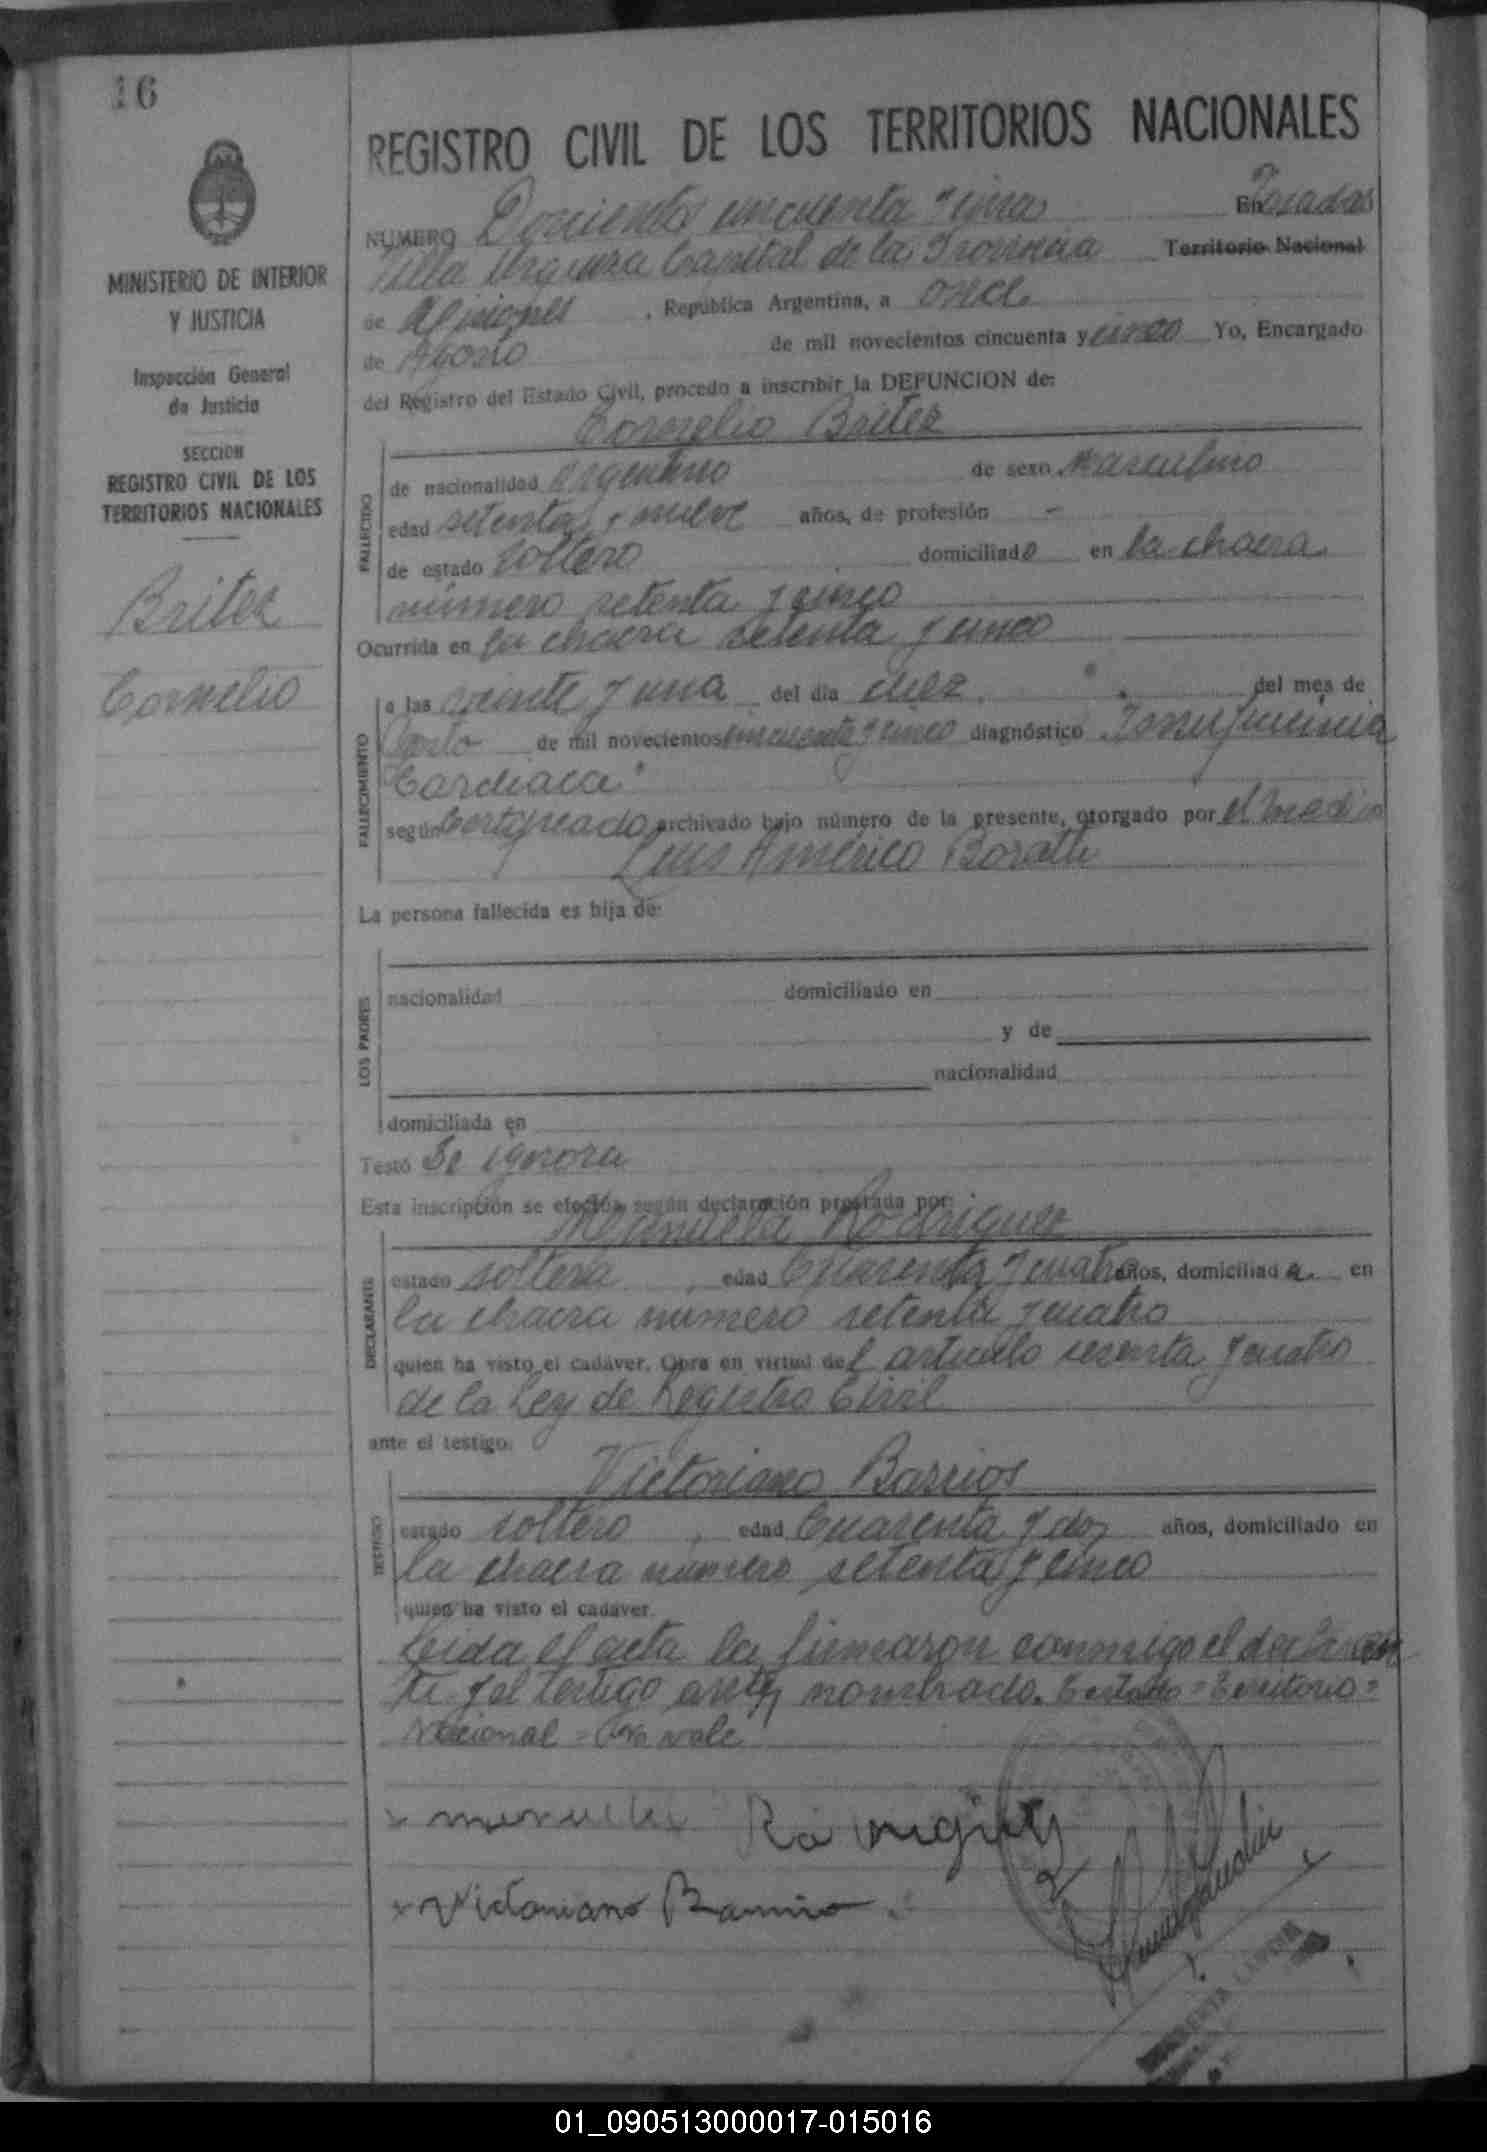 16
REGISTRO CIVIL DE LOS TERRITORIOS NACIONALES
MINISTERIO DE INTERIOR
Y JUSTICIA
Inspección General
de Justicia
SECCION
REGISTRO CIVIL DE LOS
TERRITORIOS NACIONALES
Britez
Cornelio
NUMERO Doscientos cincuenta y una En Posadas
Villa Urquiza Capital de la Provincia Territorio Nacional
de Misiones, República Argentina, a once
de Agosto de mil novecientos cincuenta y cinco Yo, Encargado
del Registro del Estado Civil, procedo a inscribir la DEFUNCION de:
Cornelio Britez
FALLECIDO
de nacionalidad Argentino de sexo Masculino
edad setenta y nueve años, de profesión -
de estado soltero domiciliado en la chacra
número setenta y cinco
Ocurrida en la chacra setenta y cinco
FALLECIMIENTO
a las veinte y una del día diez del mes de
Agosto de mil novecientos cincuenta y cinco diagnóstico "Insuficiencia
Cardiaca"
según Certificado archivado bajo número de la presente, otorgado por el medico
Luis Américo
La persona fallecida es hija de:
LOS PADRES
nacionalidad domiciliado en
y de
nacionalidad
domiciliada en
Testó Se ignora
Esta inscripción se efectúa según declaración prestada por:
Manuela Rodriguez
DECLARANTE
estado soltera, edad Cuarenta y cuatro años, domiciliada en
la chacra numero setenta y cuatro
quien ha visto el cadáver. Obra en virtud del artículo sesenta y cuatro
de la Ley de Registro Civil
ante el testigo:
Victoriano Barrios
TESTIGO
estado soltero, edad Cuarenta y dos años, domiciliado en
la chacra número setenta y cinco
quien ha visto el cadáver.
Leida el acta la firmaron conmigo el declaran
te y el testigo antes nombrado. Testado = Territorio =
Nacional = No vale
x manuela Rodrigues
x Victoriano Barrio
01_090513000017-015016